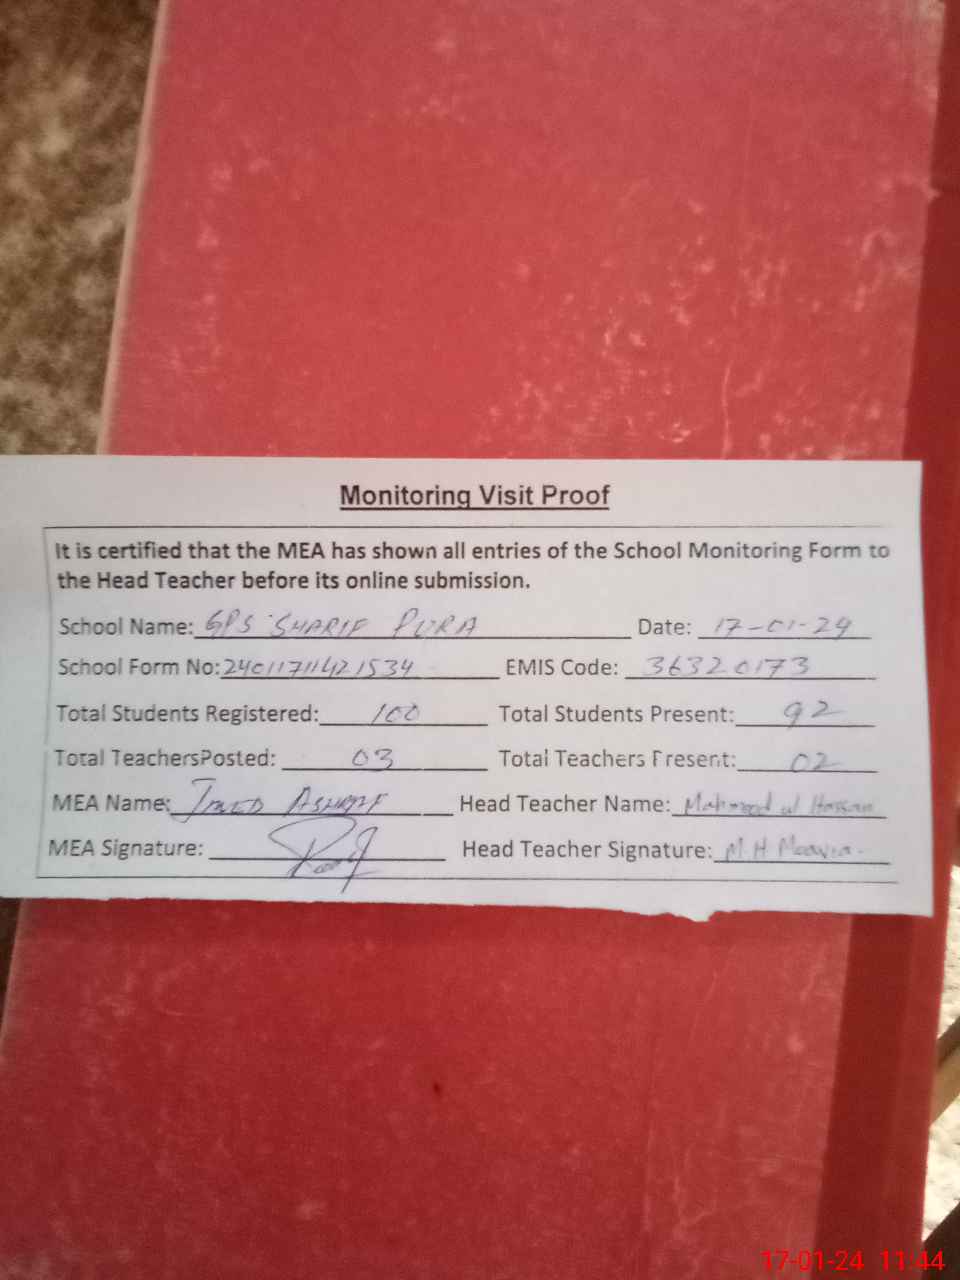 Monitoring Visit Proof
It is certified that the MEA has shown all entries of the School Monitoring Form to
the Head Teacher before its online submission.
School Name: GPS SHARIF PURA Date: 17-01-24
School Form No: 240117114421534 EMIS Code: 36320173
Total Students Registered: 100 Total Students Present: 92
Total TeachersPosted: 03 Total Teachers Present: 02
MEA Name: ASHRAF Head Teacher Name: Mahmood ul Hassan
MEA Signature: Head Teacher Signature: M.H
17-01-24 11:44